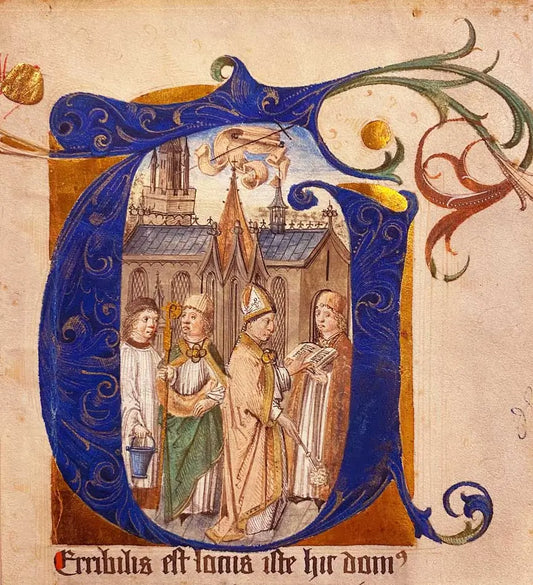 T
Erribilis est locus iste hic domꝰ